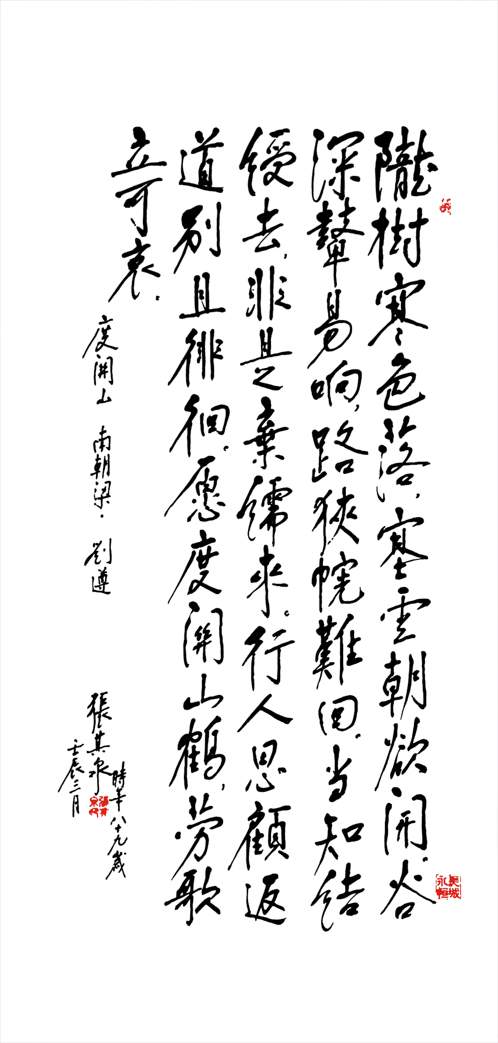 隴樹寒色落，塞云朝欲開。谷
深鼙易响，路狹幰難回。当知結
綬去，非是棄繻來。行人思顧返
道别且徘徊。愿度関山鶴，劳歌
立可哀。
度関山 南朝梁·劉遵
張其
時年八十九歲
壬辰三月